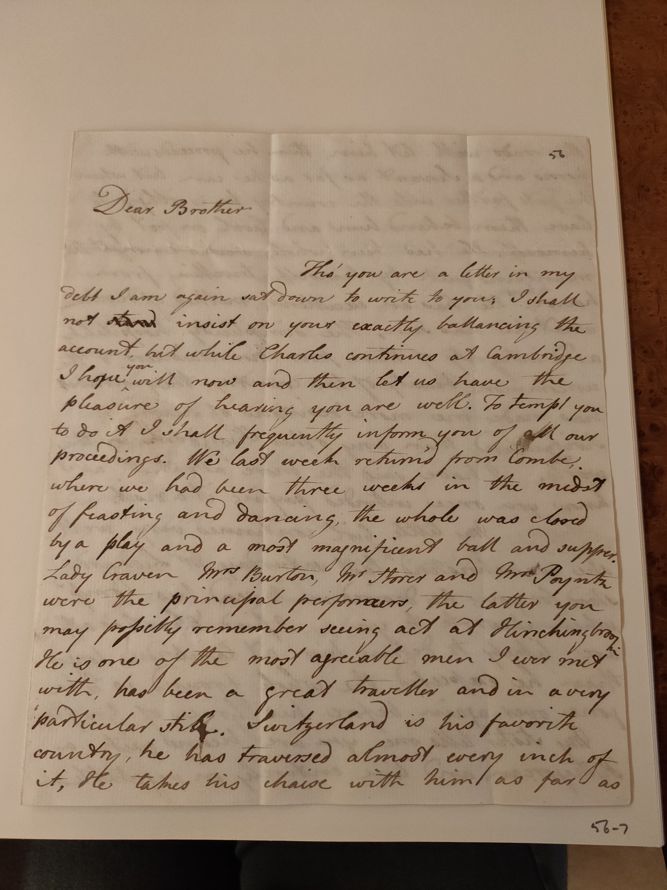 56
Dear Brother
Tho' you are a letter in my
debt I am again sat down to write to you; I shall
not stand insist on your exactly ballancing the
account, but while Charles continues at Cambridge
I hope you will now and then let us have the
pleasure of hearing you are well. To tempt you
to do it I shall frequently inform you of all our
proceedings. We last week return'd from Combe,
where we had been three weeks in the midst
of feasting and dancing, the whole was closed
by a play and a most magnificent ball and supper.
Lady Craven Mrs Burton, Mr Storer and Mr Poyntz
were the principal performers, the latter you
may possibly remember seeing act at Hinchingbrook
He is one of the most agreeable men I ever met
with, has been a great traveller and in a very
particular stile. Switzerland is his favorite
country, he has traversed almost every inch of
it, He takes his chaise with him as far as
56-7